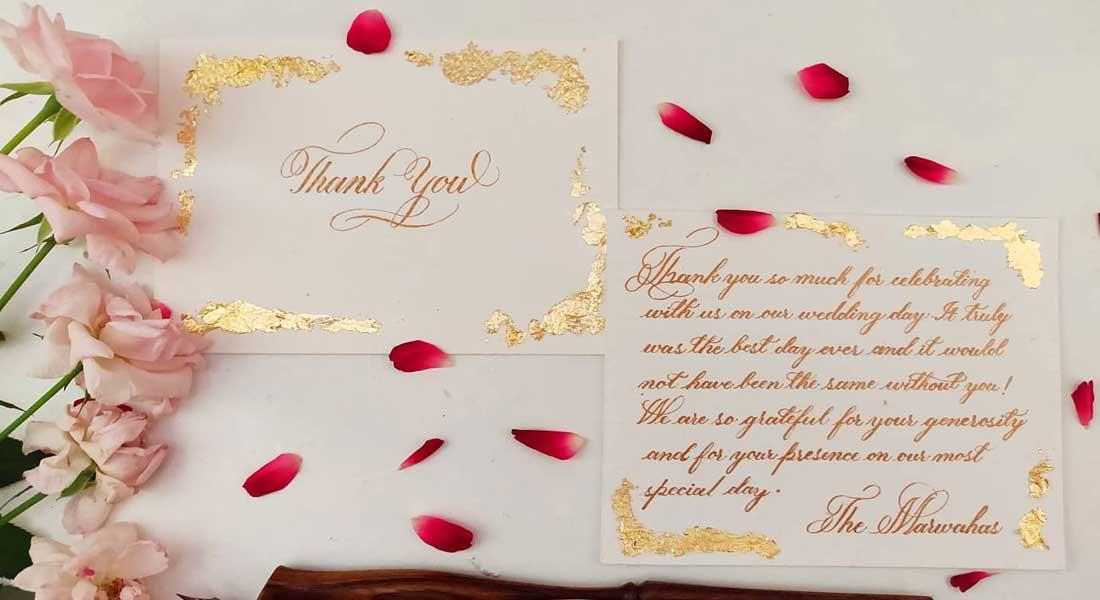 Thank You
Thank you so much for celebrating
with us on our wedding day. It truly
was the best day ever and it would
not have been the same without you!
We are so grateful for your generosity
and for your presence on our most
special day.
The Marwahas